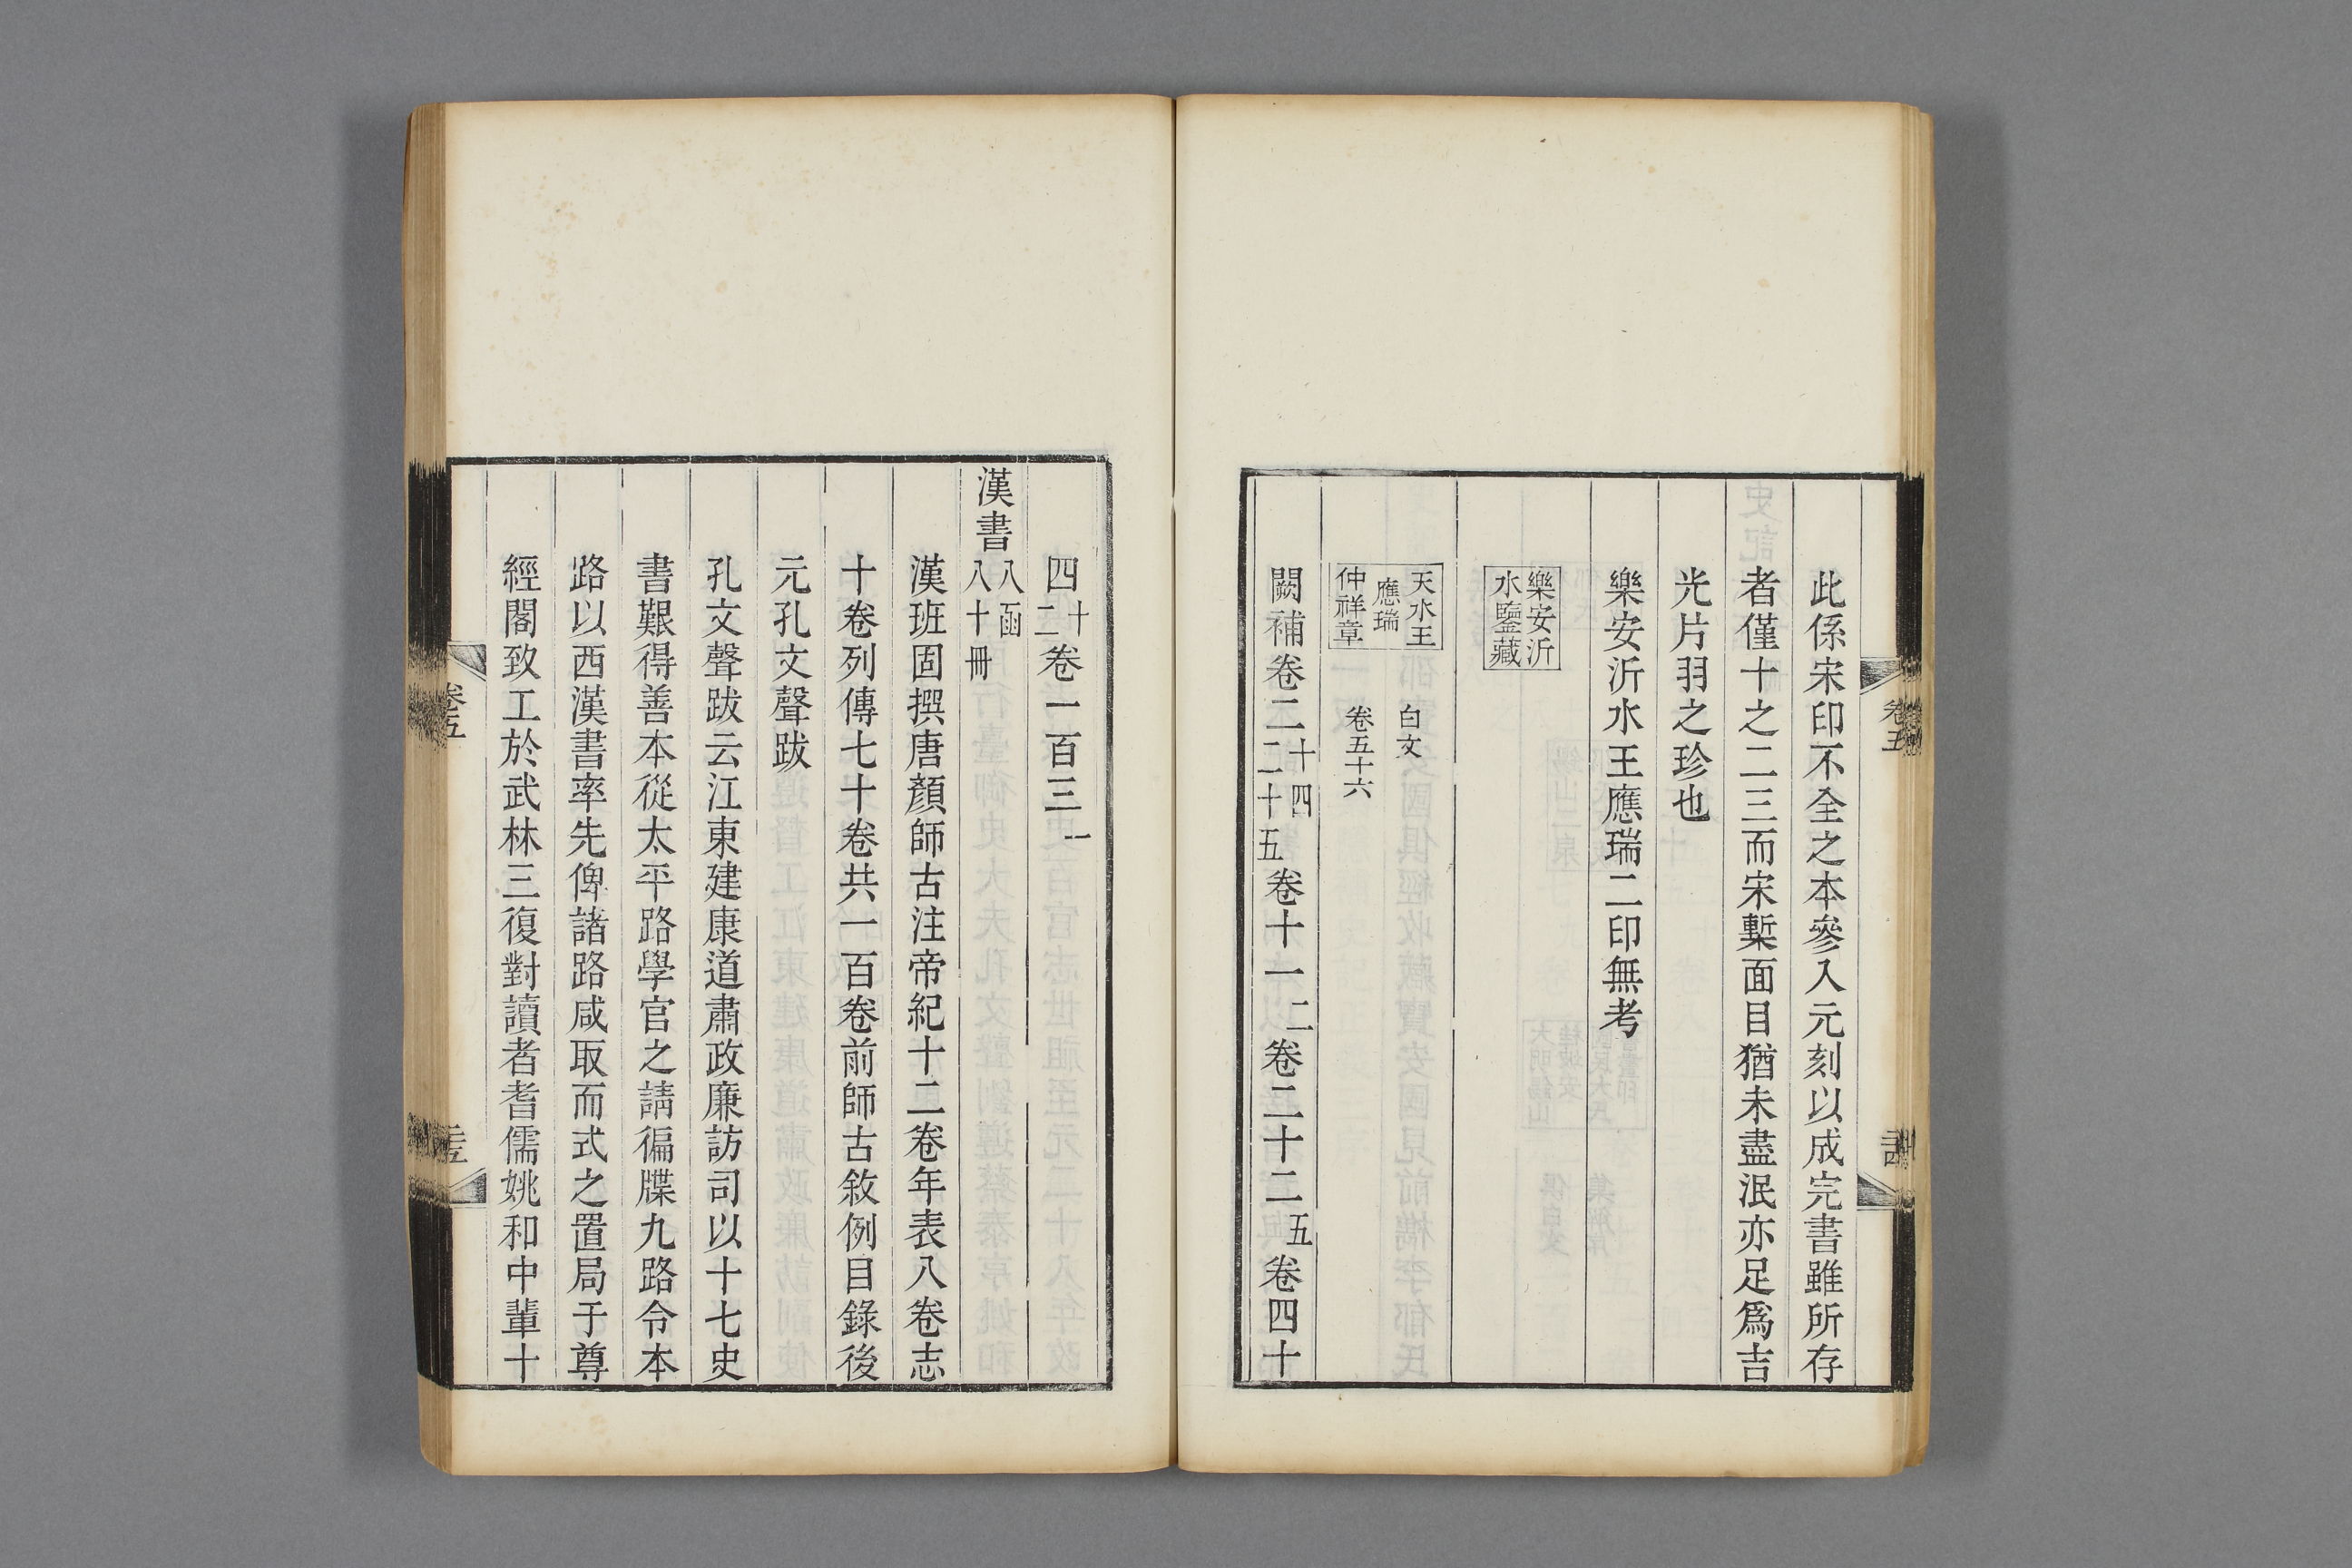 此係宋印不全之本參入元刻以成完書雖所存
者僅十之二三而宋槧面目猶未盡泯亦足爲吉
光片羽之珍也
樂安沂水王應瑞二印無考
樂安沂
水鑒藏
天水王
應瑞
仲祥章
白文
卷五十六
闕補卷二十四二十五卷十一二卷二十二五卷四十
卷五
三十四
四十二卷一百三一
漢書八函八十冊
漢班固撰唐顏師古注帝紀十二卷年表八卷志
十卷列傳七十卷共一百卷前師古敘例目錄後
元孔文聲跋
孔文聲跋云江東建康道肅政廉訪司以十七史
書艱得善本從太平路學官之請徧牒九路令本
路以西漢書率先俾諸路咸取而式之置局于尊
經閣致工於武林三復對讀者耆儒姚和中輩十
卷五
三十五